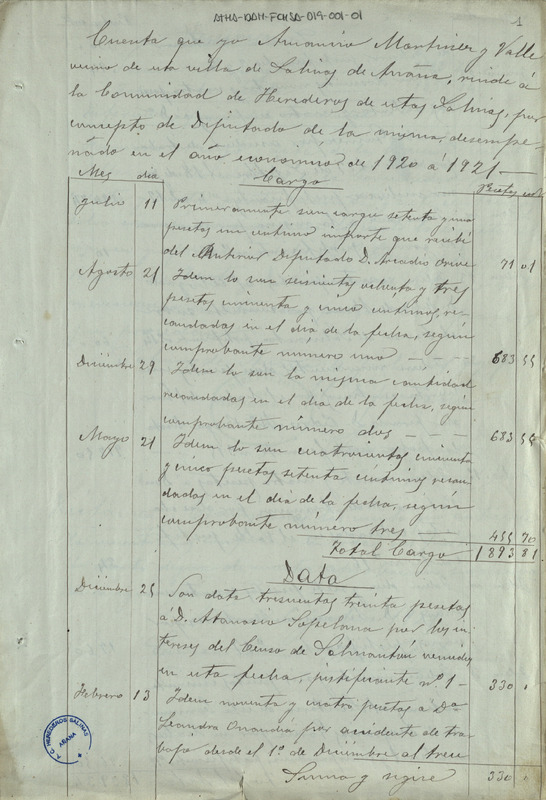 ATHA-DAH-FCHSA-019-001-01
1
Cuenta que yo Amancio Martinez y Valle
vecino de esta villa de Salinas de Añana, rinde á
la Comunidad de Herederos de estas Salinas, por
concepto de Diputado de la misma, desempe-
ñado en el año económico de 1920 á 1921-
Mes dia Cargo Pesetas cnts
Julio 11 Primeramente son cargo setenta y una
pesetas un centimo importe que recibí
del Anterior Diputado D. Arcadio 71 01
Agosto 21 Idem lo son seiscientas ochenta y tres
pesetas cincuenta y cinco centimos, re-
caudadas en el dia de la fecha, según
comprobante número uno - - - - 683 55
Diciembre 29 Idem lo son la misma cantidad
recaudadas en el dia de la fecha, según
comprobante número dos - - - 683 55
Mayo 21 Idem lo son cuatrocientas cincuenta
y cinco pesetas setenta centimos recau-
dadas en el dia de la fecha, según
comprobante número tres - 455 70
Total Cargo 1893 81
Data
Diciembre 25 Son data trescientas treinta pesetas
á D. Atanasio Sopelana por los in-
tereses del Censo de Salmantón vencidos
en esta fecha, justificante nº 1 - 330 "
Febrero 13 Idem noventa y cuatro pesetas á Dª
Leandra por accidente de tra-
bajo desde el 1º de Diciembre al trece
Suma y sigue 330 "
A.C. HEREDEROS SALINAS
AÑANA